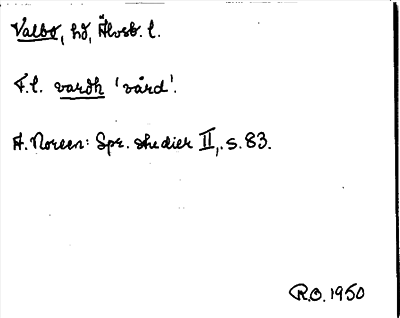 Valbo, hd, Älvsb. l.
F.l. vardh 'vård'.
A. Noreen: Spr. studier II, s. 83.
R.O. 1950